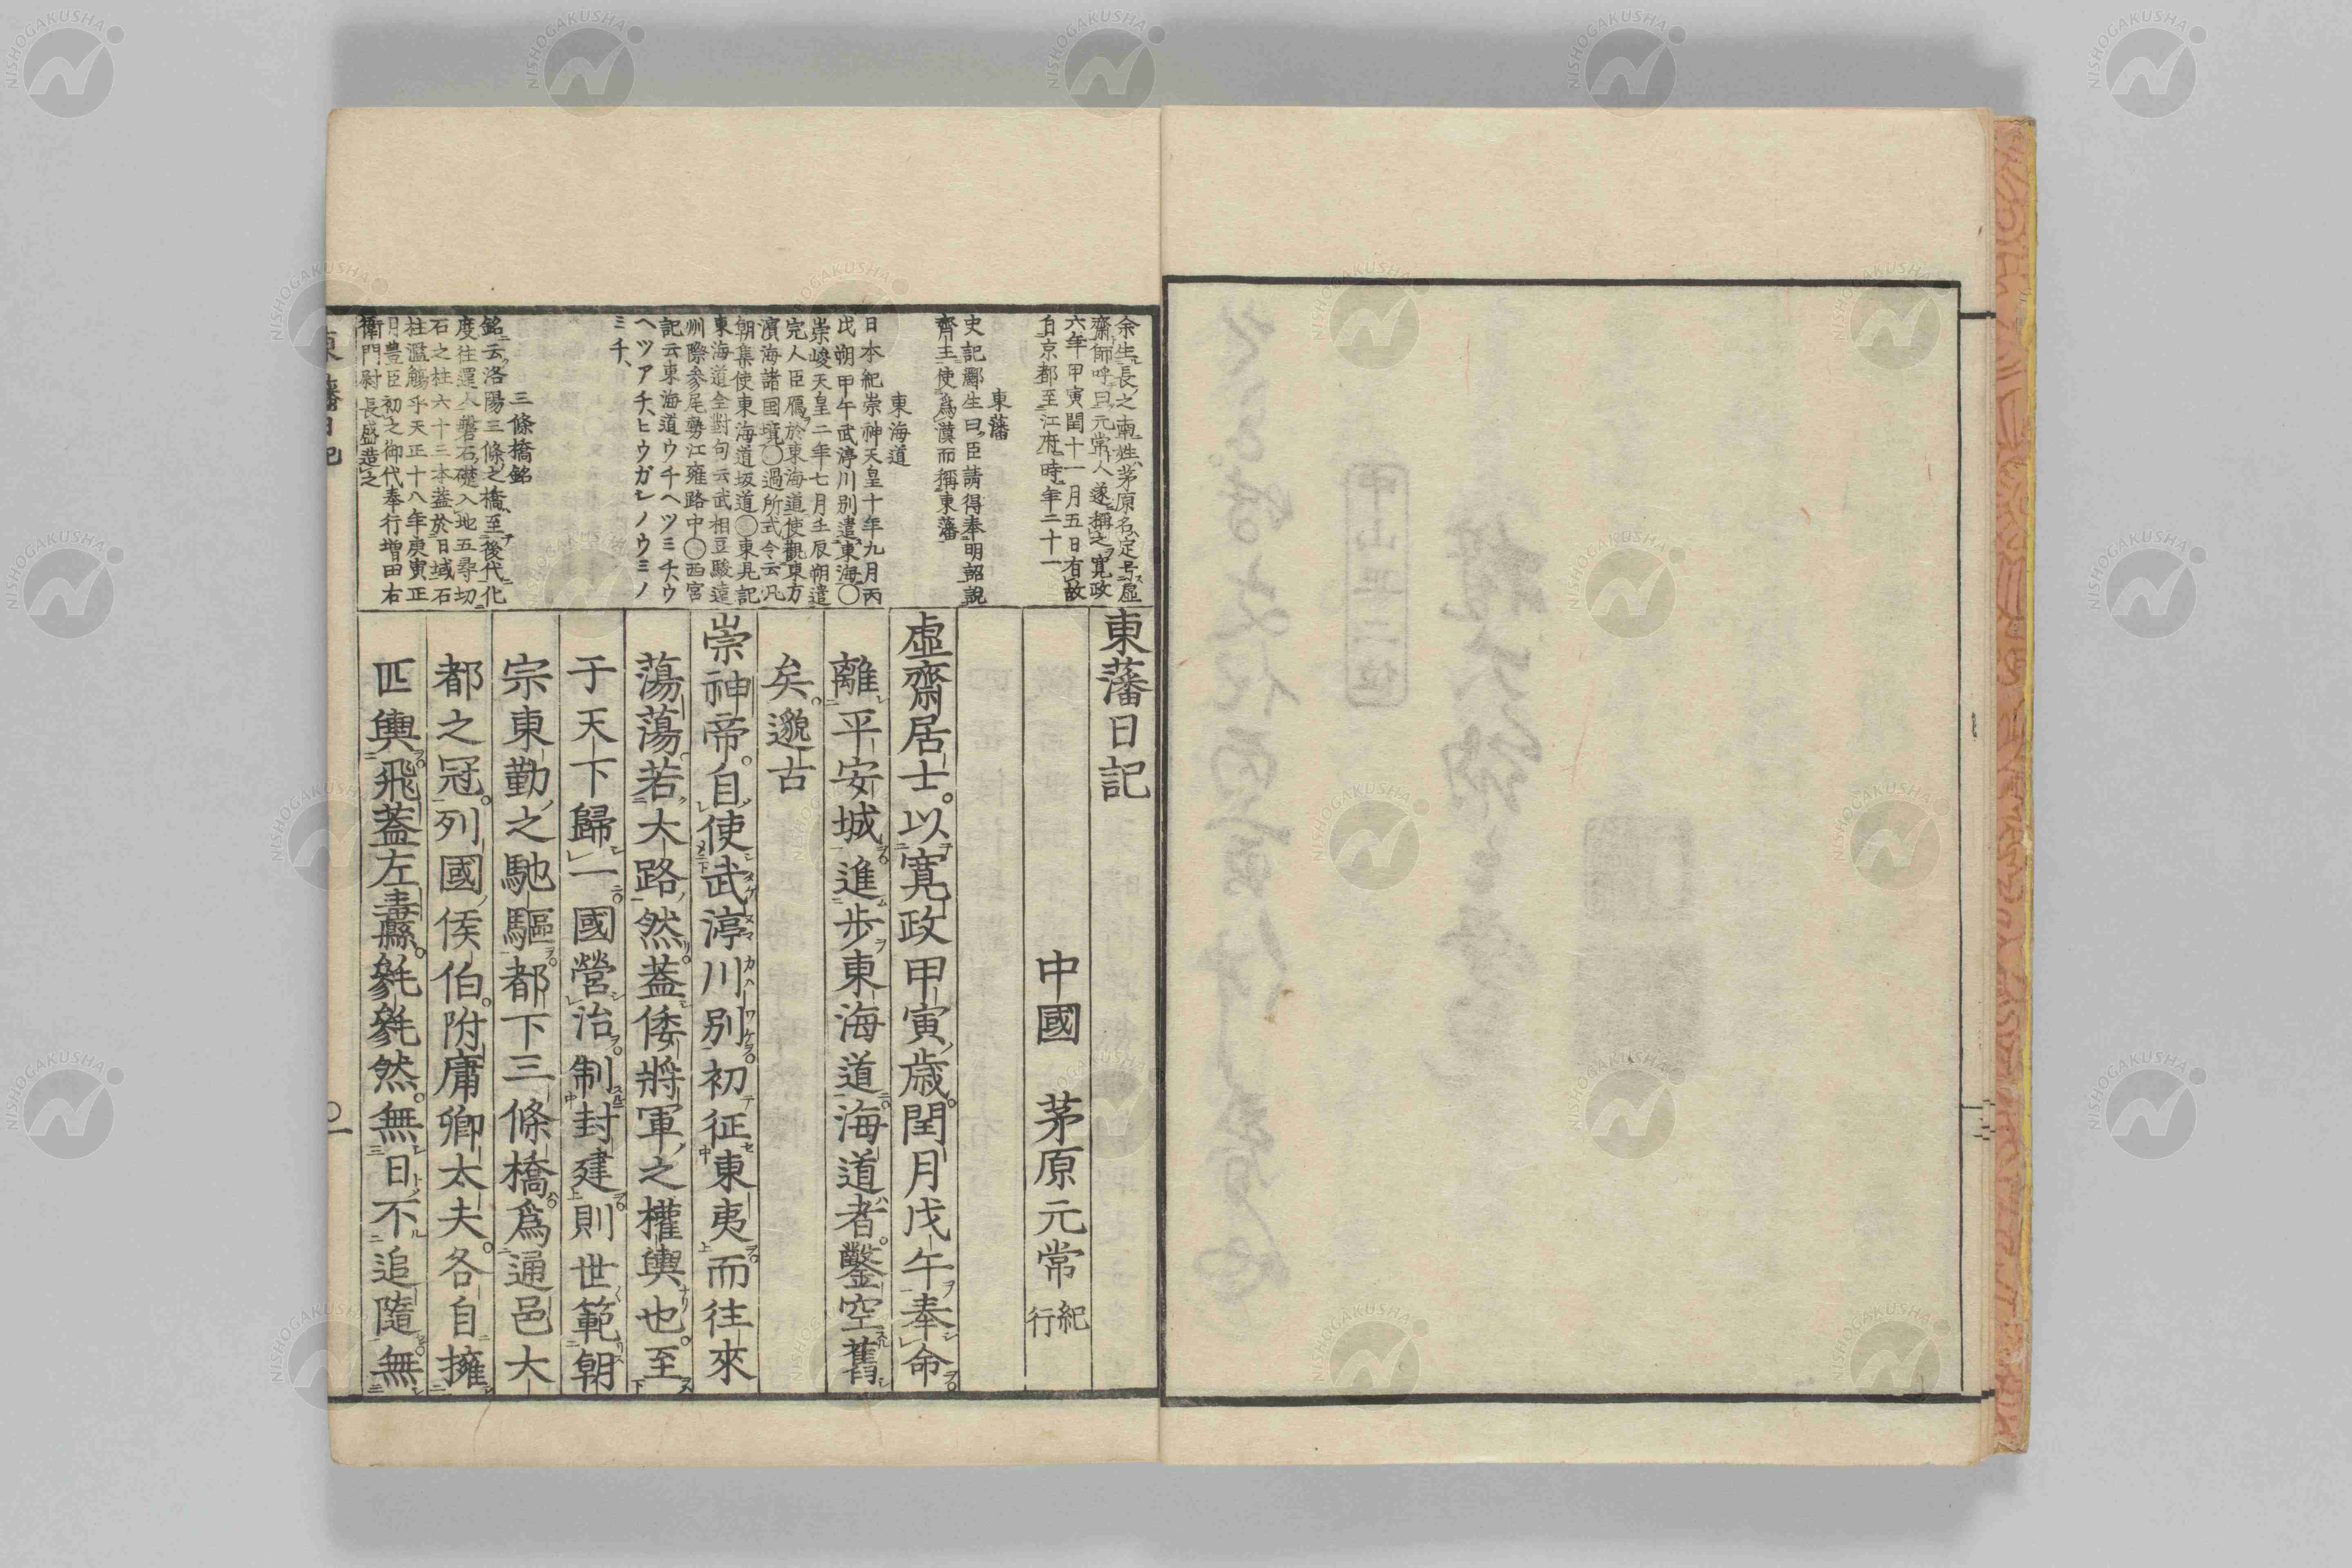 余生長之南姓茅原名定号虛
齋師呼曰元常人遂稱之寬政
六年甲寅閏十一月五日有故
自京都至江府時年二十一
東藩
史記酈生曰臣請得奉明詔說
齊王使爲漢而稱東藩
東海道
日本紀崇神天皇十年九月丙
戌朔甲午武渟川別遣東海〇
崇峻天皇二年七月壬辰朔遣
宍人臣鴈於東海道使觀東方
濱海諸國境〇過所式令云凡
朝集使東海道坂道〇東具記
東海道全對句云武相豆駿遠
州際參尾勢江雍路中〇西宮
記云東海道ウチヘツミチ、ウ
ヘツアチ、ヒウガシノウミノ
ミチ、
三條橋銘
銘云洛陽三條之橋至後代化
度往還人磐石礎入地五尋切
石之柱六十三本蓋於日域石
柱濫觴乎天正十八年庚寅正
月豊臣初之御代奉行增田右
衛門尉長盛造之
東藩日記
中國 茅原元常 紀行
虛齋居士。以寬政甲寅歲。閏月戊午奉命
離平安城。進步東海道。海道者。鑿空舊
矣。邈古
崇神帝。自使武渟川別。初征東夷。而往來
蕩蕩。若大路然。蓋倭將軍之權輿也。至
于天下歸一。國營治。制封建。則世範朝
宗東勤之馳驅。都下三條橋。爲通邑大
都之冠。列國侯伯。附庸卿太夫。各自擁
匹輿。飛蓋左纛。毿毿然。無日不追隨。無
東藩日記
〇一